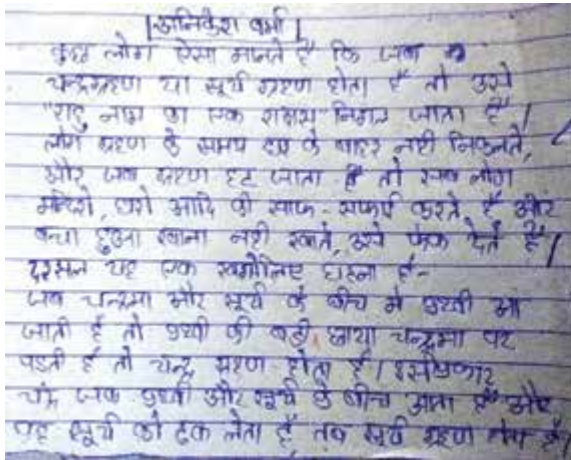 अनिकेश वर्मा
कुछ लोग ऐसा मानते है कि जब
चन्द्रग्रहण या सूर्य ग्रहण होता है तो उसे
"राहु नाम का एक राक्षस निगल जाता है।
लोग ग्रहण के समय घर के बाहर नही निकलते,
और जब ग्रहण हट जाता है तो सब लोग
मंदिरो, घरो आदि की साफ-सफाई करते है और
बचा हुआ खाना नही खाते, उसे फेक देते है।
दरसल यह एक खगोलिए घटना है-
जब चन्द्रमा और सूर्य के बीच मे पृथ्वी आ
जाती है तो पृथ्वी की बड़ी छाया चन्द्रमा पर
पडती है तो चन्द्र ग्रहण होता है। इसीप्रकार
चंद्र जब पृथ्वी और सूर्य के बीच आता है और
वह सूर्य को ढक लेता है, तब सूर्य ग्रहण होता है।